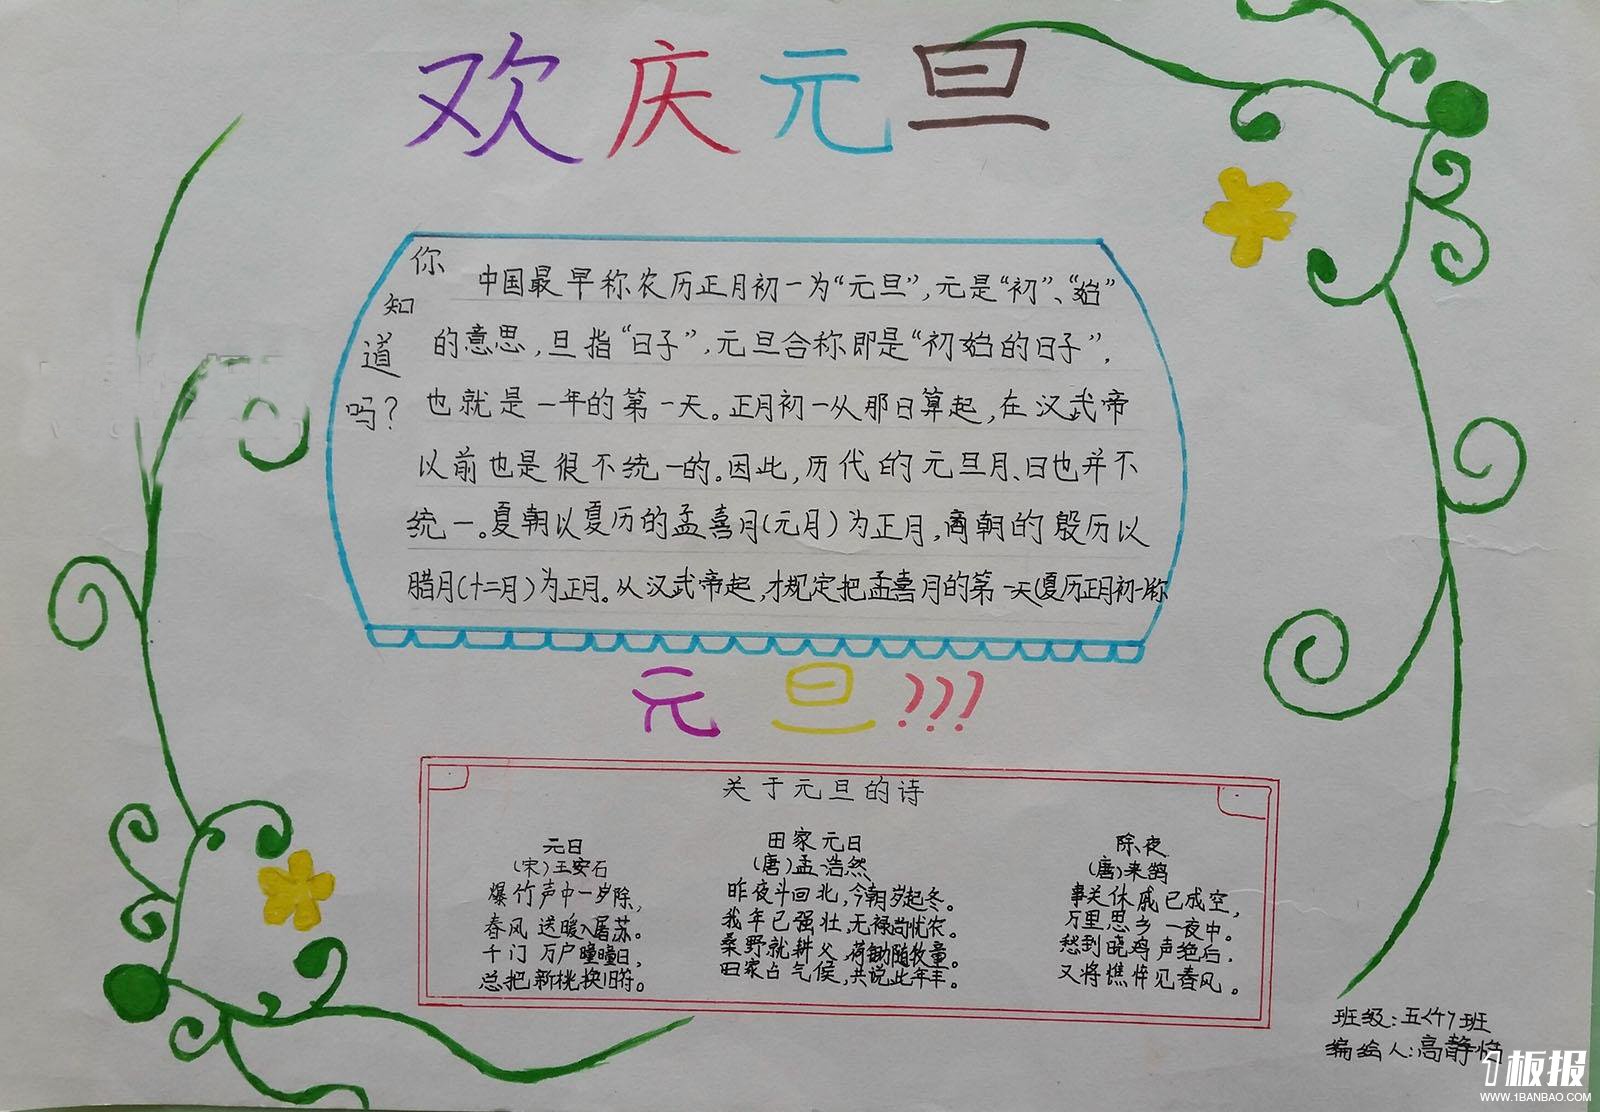 欢庆元旦
你知道吗？
中国最早称农历正月初一为“元旦”，元是“初”、“始”
的意思，旦指“日子”，元旦合称即是“初始的日子”，
也就是一年的第一天。正月初一从那日算起，在汉武帝
以前也是很不统一的。因此，历代的元旦月、日也并不
统一。夏朝以夏历的孟喜月(元月)为正月，商朝的殷历以
腊月(十二月)为正月。从汉武帝起，才规定把孟喜月的第一天(夏历正月初一)称
元旦???
关于元旦的诗
元日
(宋)王安石
爆竹声中一岁除，
春风送暖入屠苏。
千门万户曈曈日，
总把新桃换旧符。
田家元日
(唐)孟浩然
昨夜斗回北，今朝岁起冬。
我年已强壮，无禄尚忧农。
桑野就耕父，荷锄随牧童。
田家占气候，共说此年丰。
除夜
(唐)来鹄
事关休戚已成空，
万里思乡一夜中。
愁到晓鸡声绝后，
又将憔悴见春风。
班级:五(7)班
编绘人:高静怡
1板报
WWW.1BANBAO.COM